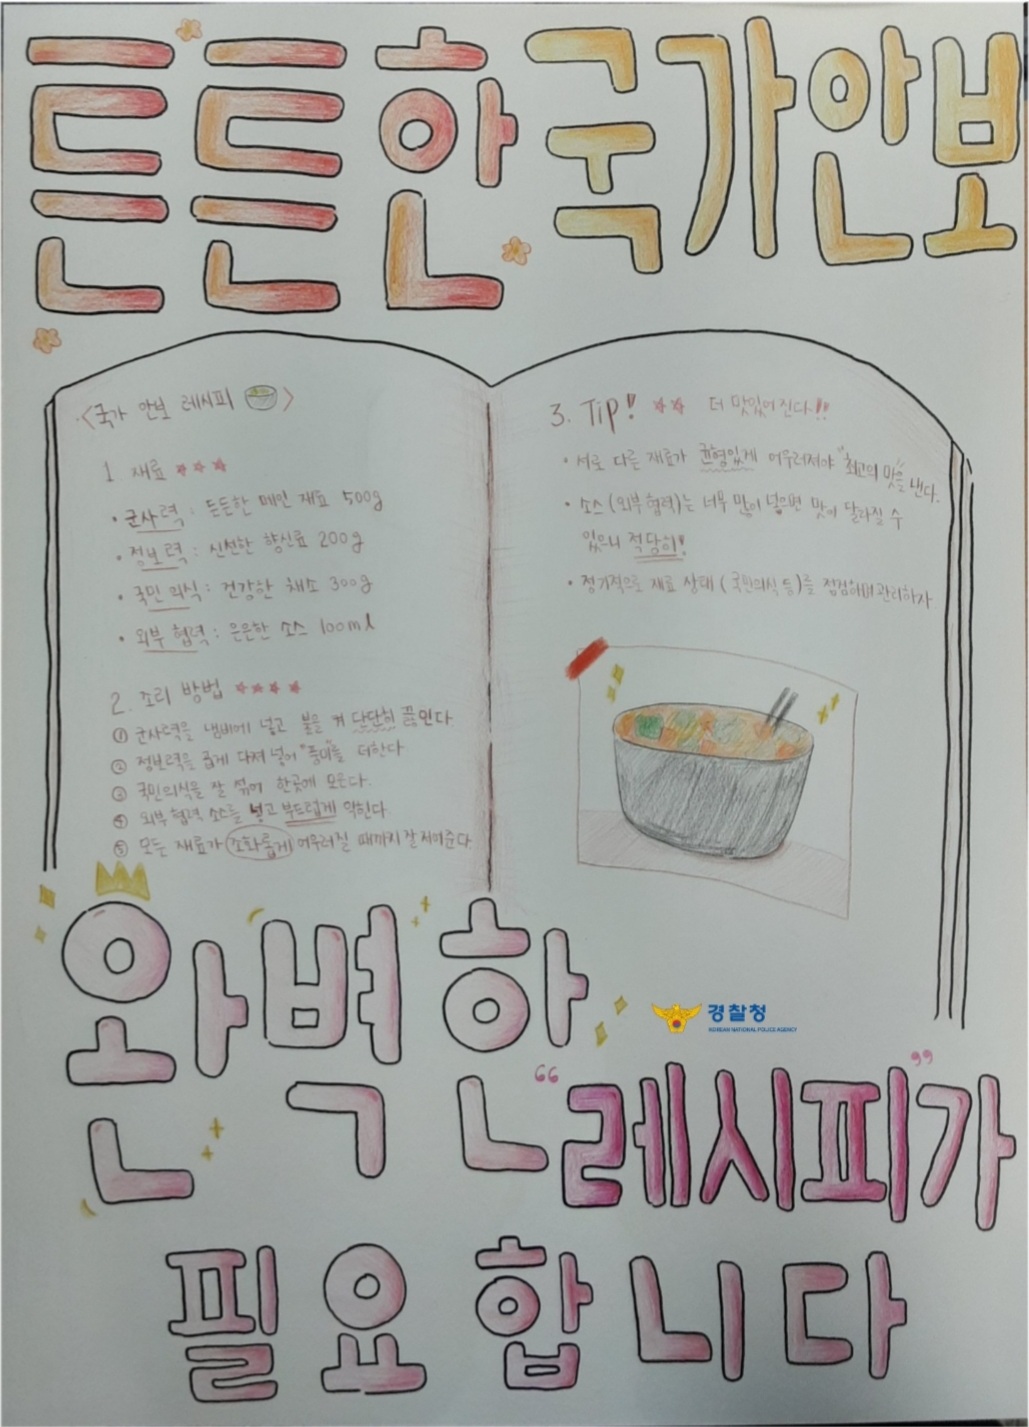 튼튼한 국가안보
<국가 안보 레시피>
1. 재료
• 군사력 : 든든한 메인 재료 500g
• 정보력 : 신선한 향신료 200g
• 국민 의식 : 건강한 채소 300g
• 외부 협력 : 은은한 소스 100ml
2. 조리 방법
① 군사력을 냄비에 넣고 불을 켜 단단히 끓인다
② 정보력을 곱게 다져 넣어 "풍미"를 더한다
③ 국민의식을 잘 섞어 한곳에 모은다.
④ 외부 협력 소스를 넣고 부드럽게 익힌다
⑤ 모든 재료가 조화롭게 어우러질 때까지 잘 저어준다
3. Tip! 더 맛있어진다!!
• 서로 다른 재료가 균형있게 어우러져야 "최고의 맛"을 낸다.
• 소스(외부 협력)는 너무 많이 넣으면 맛이 달라질 수
있으니 적당히!
• 정기적으로 재료 상태 (국민의식 등)를 점검하며 관리하자
완벽한
경찰청
KOREAN NATIONAL POLICE AGENCY
"레시피"가
필요합니다